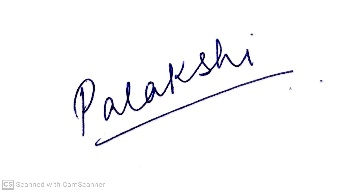 Palakshi
CS Scanned with CamScanner